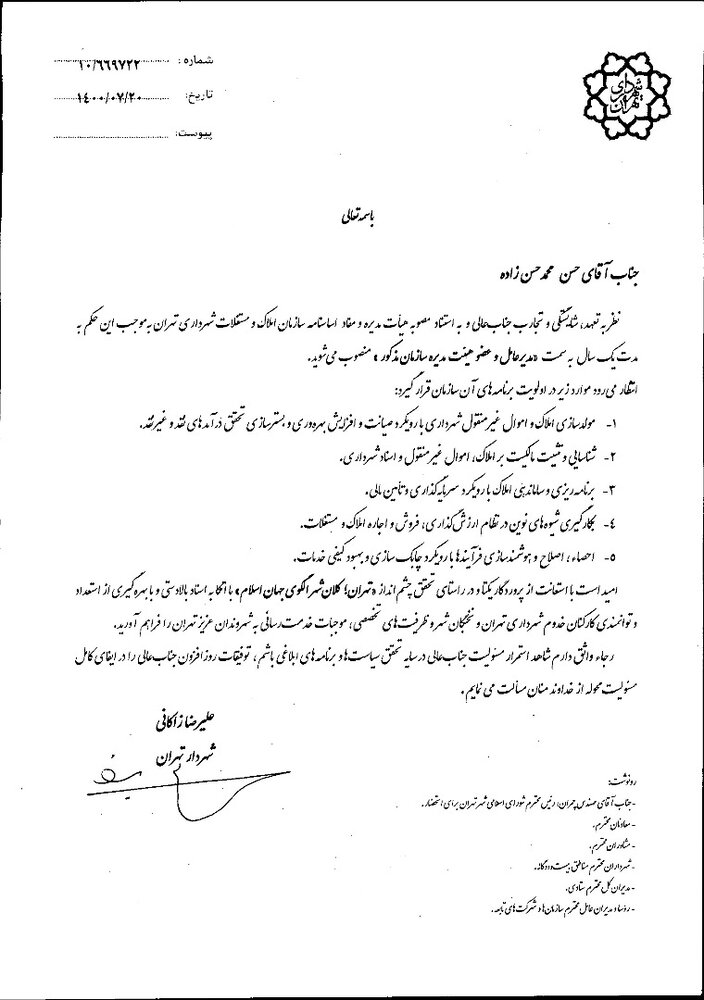 شماره: ۱۰/۶۶۹۷۲۲
تاریخ: ۱۴۰۰/۰۷/۲۰
پیوست:
شهرداری تهران
باسمه تعالی
جناب آقای حسن محمدحسن زاده
نظر به تعهد، شایستگی و تجارب جناب‌عالی و به استناد مصوبه هیأت مدیره و مفاد اساسنامه سازمان املاک و مستغلات شهرداری تهران به‌موجب این حکم به
مدت یک سال به سمت «مدیرعامل و عضو هیئت مدیره سازمان مذکور» منصوب می‌شوید.
انتظار می‌رود موارد زیر در اولویت برنامه‌های آن سازمان قرار گیرد:
۱- مولدسازی املاک و اموال غیرمنقول شهرداری با رویکرد صیانت و افزایش بهره‌وری و بسترسازی تحقق درآمدهای نقد و غیرنقد.
۲- شناسایی و تثبیت مالکیت بر املاک، اموال غیرمنقول و اسناد شهرداری.
۳- برنامه‌ریزی و ساماندهی املاک با رویکرد سرمایه‌گذاری و تأمین مالی.
۴- بکارگیری شیوه‌های نوین در نظام ارزش‌گذاری، فروش و اجاره املاک و مستغلات.
۵- احصاء، اصلاح و هوشمندسازی فرآیندها با رویکرد چابک سازی و بهبود کیفی خدمات.
امید است با استعانت از پروردگار یکتا و در راستای تحقق چشم انداز «تهران؛ کلان شهر الگوی جهان اسلام» با اتکا به اسناد بالادستی و با بهره‌گیری از استعداد
و توانمندی کارکنان خدوم شهرداری تهران و نخبگان شهر و ظرفیت‌های تخصصی، موجبات خدمت‌رسانی به شهروندان عزیز تهران را فراهم آورید.
رجاء واثق دارم شاهد استمرار مسئولیت جناب‌عالی در سایه تحقق سیاست‌ها و برنامه‌های ابلاغی باشم، توفیقات روزافزون جناب‌عالی را در ایفای کامل
مسئولیت محوله از خداوند منان مسألت می نمایم.
علیرضا زاکانی
شهردار تهران
رونوشت:
-جناب آقای مهندس چمران، رئیس محترم شورای اسلامی شهر تهران برای استحضار.
- معاونان محترم.
- مشاوران محترم.
- شهرداران محترم مناطق بیست‌ودوگانه.
- مدیران کل محترم ستادی.
- رؤسا و مدیران عامل محترم سازمان‌ها و شرکت‌های تابعه.